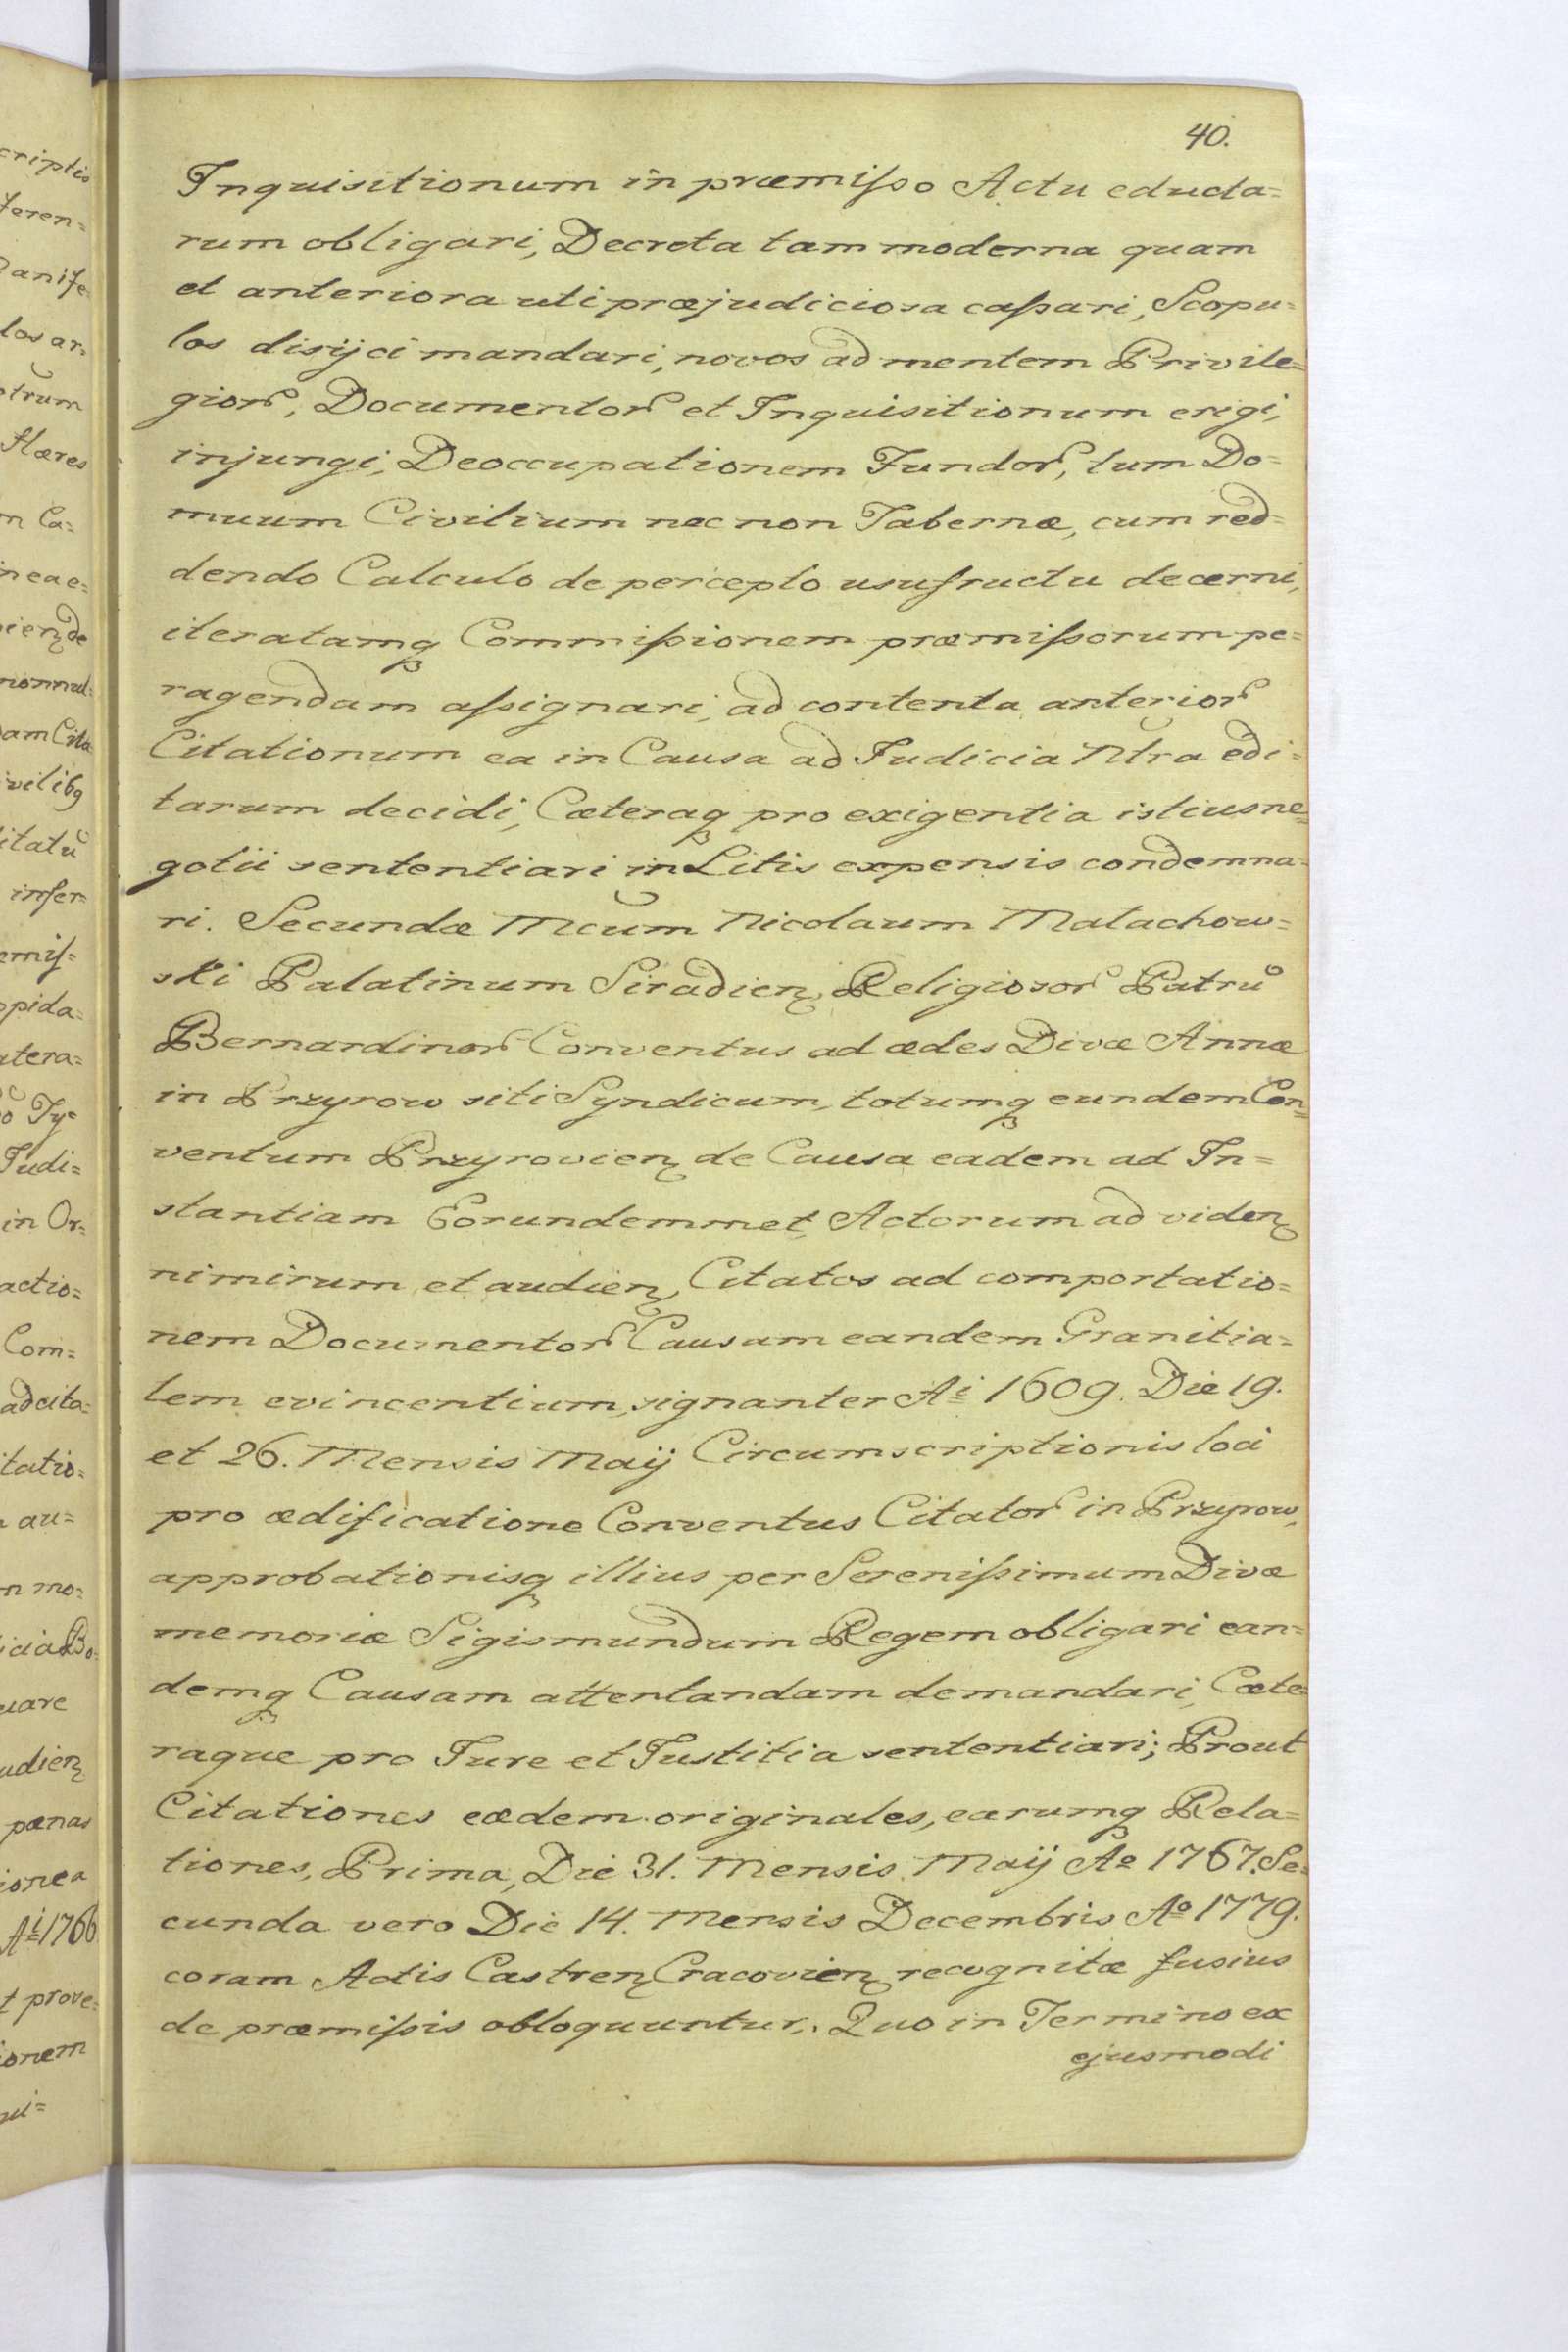 40.
Inquisitionum in præmiſso Actu educta=
rum obligari, Decreta tam moderna quam
et anteriora uti præjudiciosa caſsari, Scopu=
los disijci mandari, novos ad mentem Privile=
gior, Documentor et Inquisitionum erigi,
injungi, Deoccupationem Fundor, tum Do=
muum Civilium nec non Tabernæ, cum red=
dendo Calculo de percepto usufructu decerni,
iteratamq Commiſsionem præmiſsorum pe=
ragendam aſsignari, ad contenta anterior
Citationum ea in Causa ad Judicia Ntra edi=
tarum decidi, Cæteraq pro exigentia istius ne=
gotii sententiari in Litis expensis condemna=
ri. Secundæ Mcum Nicolaum Małachow=
ski Palatinum Siradien, Religiosor Patrū
Bernardinor Conventus ad ædes Divæ Annæ
in Przyrow siti Syndicum, totumq eundem Con=
ventum Przyrovien de Causa eadem ad In=
stantiam Eorundemmet Actorum ad viden
nimirum et audien, Citatos ad comportatio=
nem Documentor Causam eandem Granitia=
lem evincentium, signanter Ai 1609. Die 19.
et 26. Mensis Maij Circumscriptionis loci
pro ædificatione Conventus Citator in Przyrow,
approbationisq illius per Sereniſsimum Divæ
memoriæ Sigismundum Regem obligari ean=
demq Causam attentandam demandari, Cæte=
raque pro Jure et Justitia sententiari; Prout
Citationes eædem originales, earumq Rela=
tiones, Prima, Die 31. Mensis Maij Ao 1767. Se=
cunda vero Die 14. Mensis Decembris Ao 1779.
coram Actis Castren Cracovien recognitæ fusius
de præmiſsis obloquuntur. Quo in Termino ex
ejusmodi